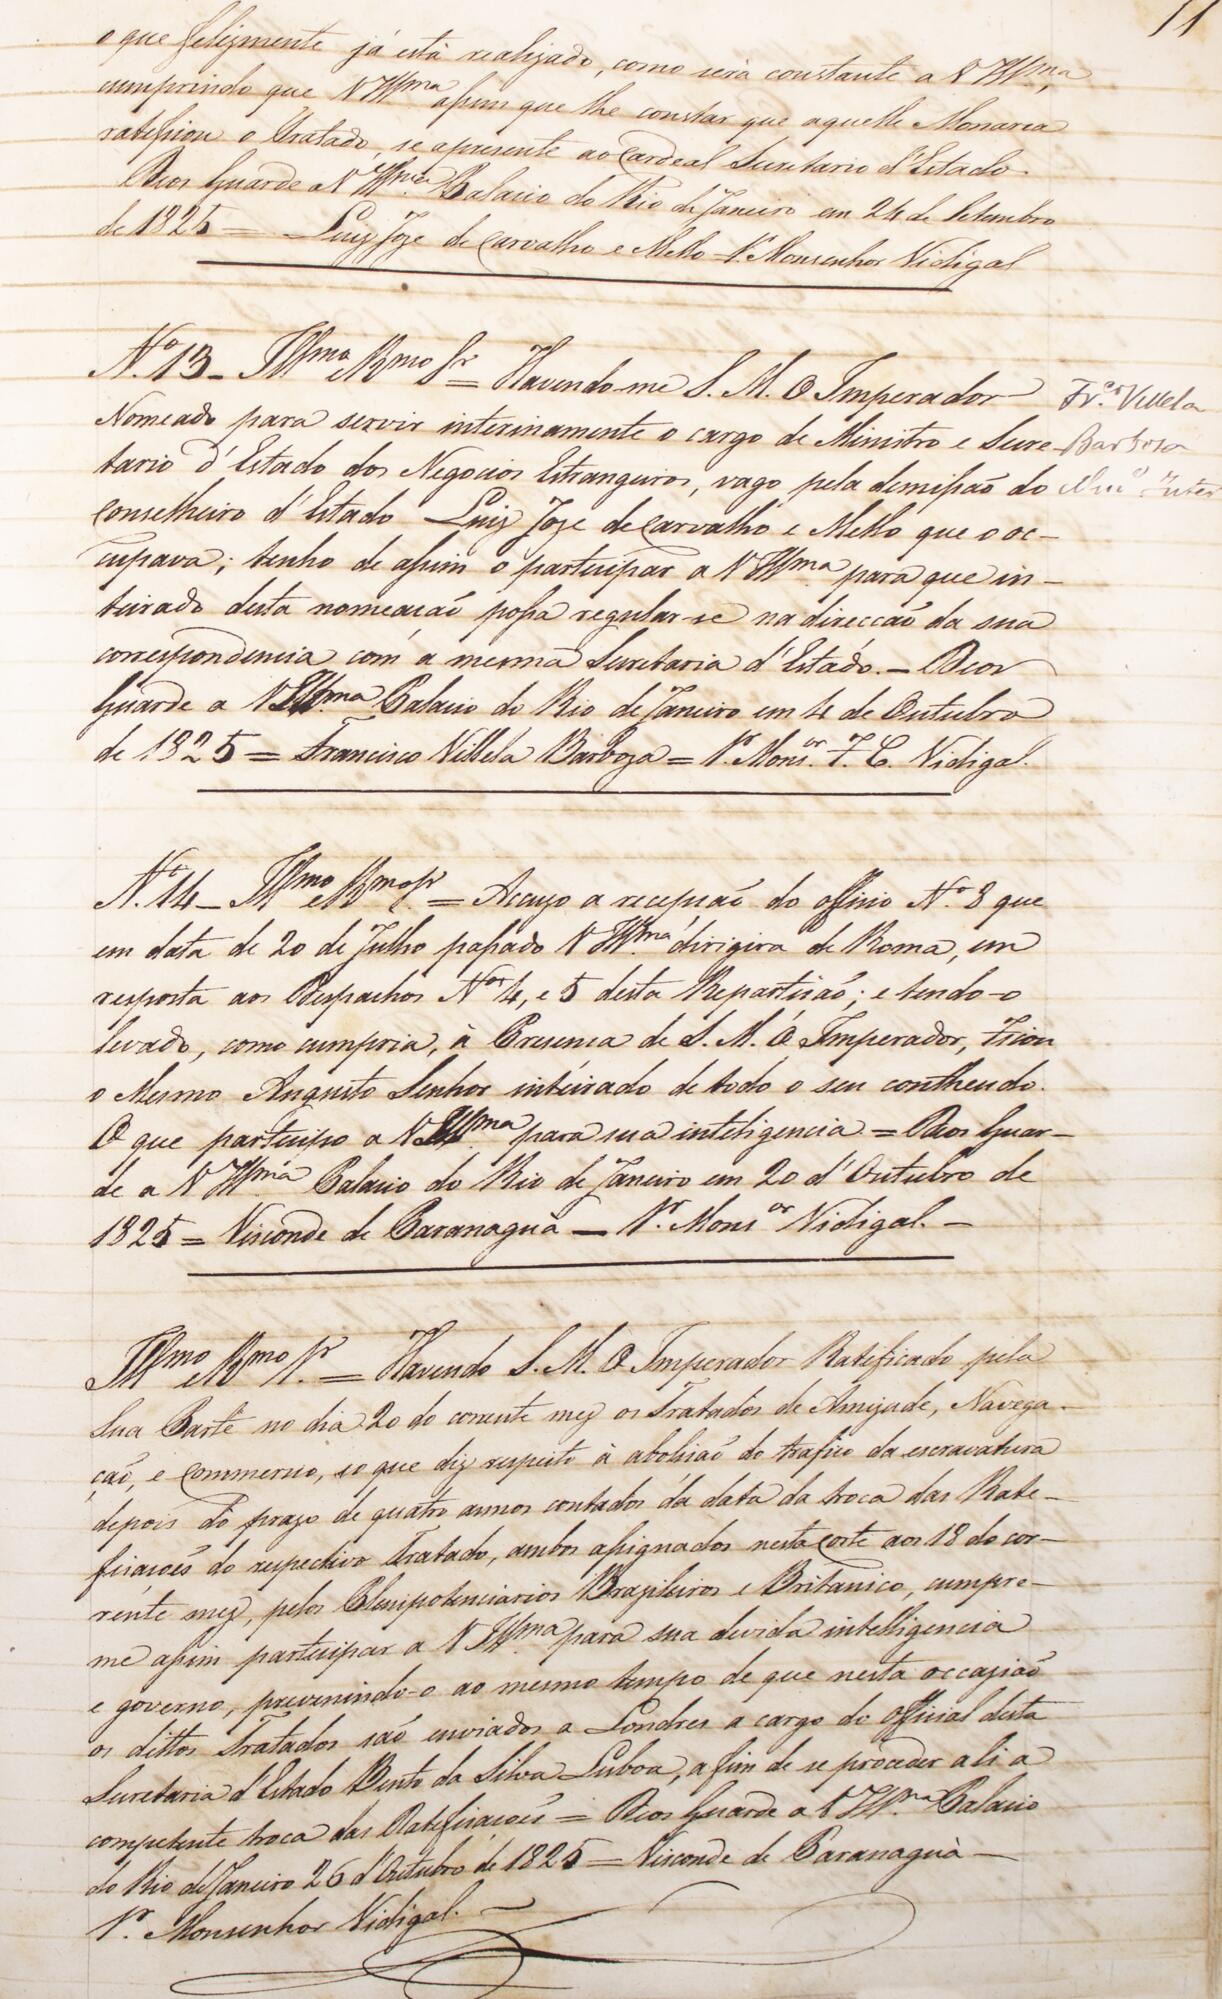 11
o que felizmente já está realizado, como será constante a V Illma,
cumprindo que V Illma apim que lhe constar que aquelle Monarca
ratificou o Tratado, se apresente ao Cardeal Secretario d'Estado.
Deos Guarde a V Illma Palacio do Rio de Janeiro em 24 de Setembro
de 1825 = Luiz Joze de Carvalho e Mello - Sr. Monsenhor Vidigal
No. 13 - Illmo e Rmo Sr = Havendo-me S. M. O Imperador
Nomeado para servir interinamente o cargo de Ministro e Secre-
tario d'Estado dos Negocios Estrangeiros, vago pela demissão do
Conselheiro d'Estado Luiz Joze de Carvalho e Mello que o oc-
cupava; tenho de assim o participar a V Illma para que in-
teirado desta nomeação possa regular-se na direccão da sua
correspondencia com a mesma Secretaria d'Estado. - Deos
Guarde a V Illma Palacio do Rio de Janeiro em 4 de Outubro
de 1825 = Francisco Villela Barboza = Sr. Monsor. F. C. Vidigal.
Frco. Villela
Barbosa
No. 14 - Illmo e Rmo Sr = Accuzo a recepsão do officio No. 8 que
em data de 20 de Julho passado V Illma dirigira de Roma, em
resposta aos Despachos Nos 4, e 5 desta Repartição; e tendo-o
levado, como cumpria, à Presença de S. M. O Imperador, ficou
o Mesmo Augusto Senhor inteirado de todo o seu contheudo.
O que participo a V Illma para sua inteligencia = Deos Guar-
de a V Illma Palacio do Rio de Janeiro em 20 d'Outubro de
1825 = Visconde de Paranaguà - Sr. Monsor Vidigal. -
Illmo e Rmo Sr. = Havendo S. M. O Imperador Ratificado pela
Sua Parte no dia 20 do corrente mez os Tratados de Amizade, Navega-
ção, e Commercio, e o que diz respeito à abolição do trafico da escravatura
depois do prazo de quatro annos contados da data da troca das Rate-
ficações do respectivo Tratado, ambos assignados nesta Corte aos 18 do cor-
rente mez, pelos Plenipotenciarios Brazileiros e Britanico, cumpre-
me assim participar a V Illma para sua devida intelligencia
e governo, prevenindo-o ao mesmo tempo de que nesta occazião
os dittos Tratados são enviados a Londres a cargo do Official desta
Secretaria d'Estado Bento da Silva Lisboa, a fim de se proceder ali a
competente troca das Ratificações = Deos Guarde a V Illma Palacio
do Rio de Janeiro 26 d'Outubro de 1825 = Visconde de Paranaguà -
Sr. Monsenhor Vidigal. -